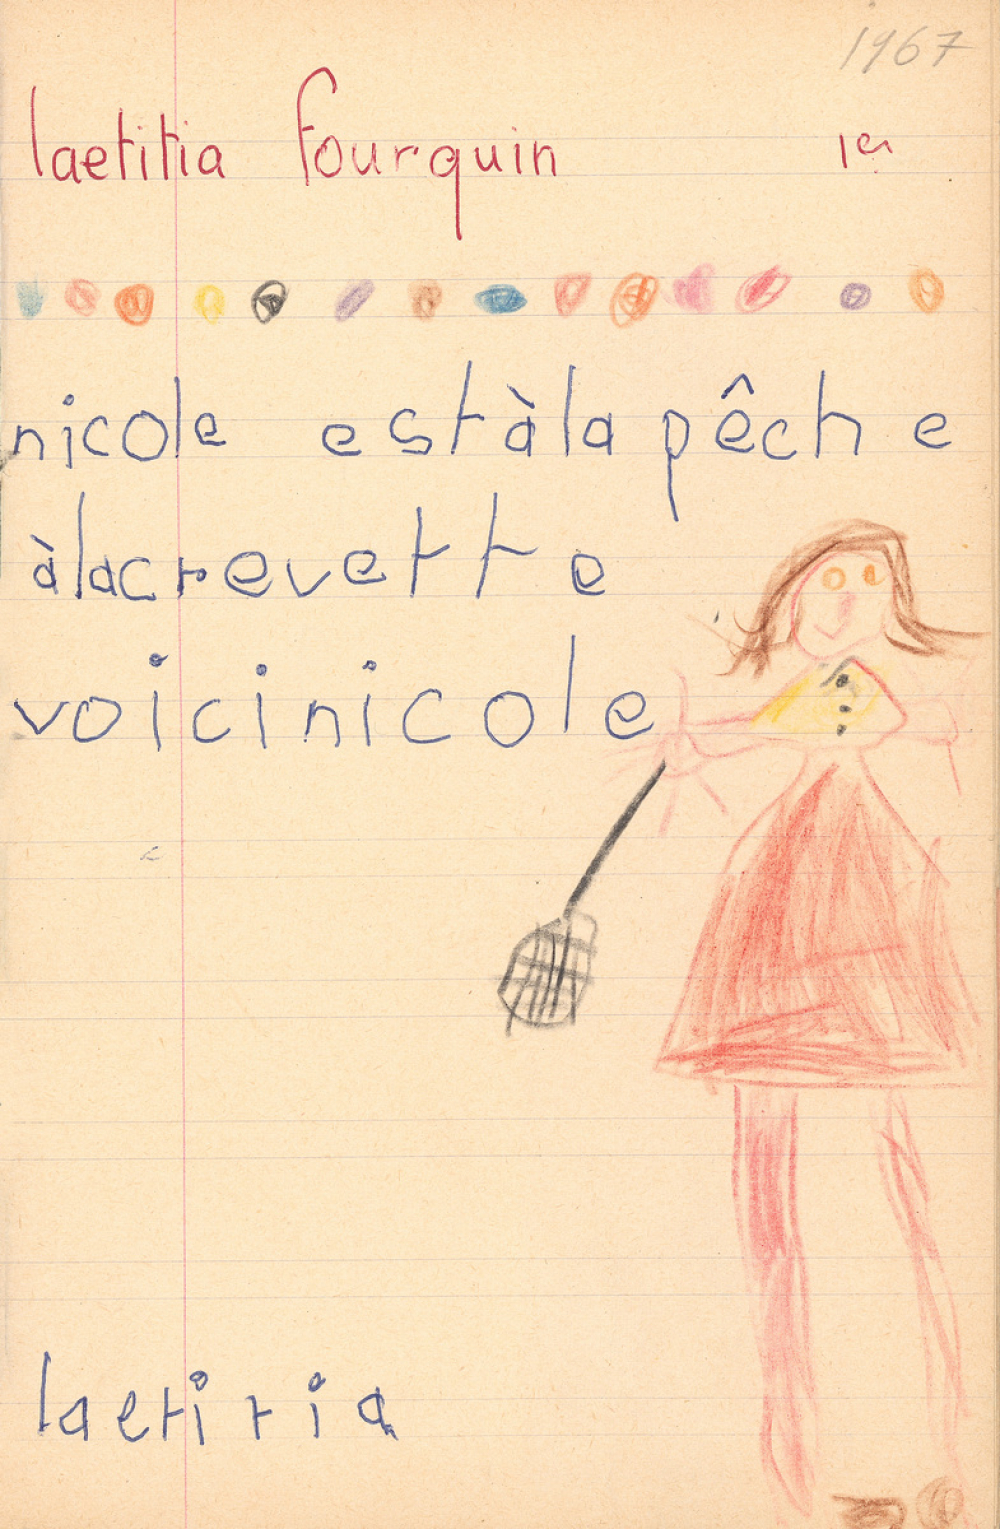 1967
laetitia fourquin 1er
nicole est à la pêche
à la crevette
voici nicole
laetitia